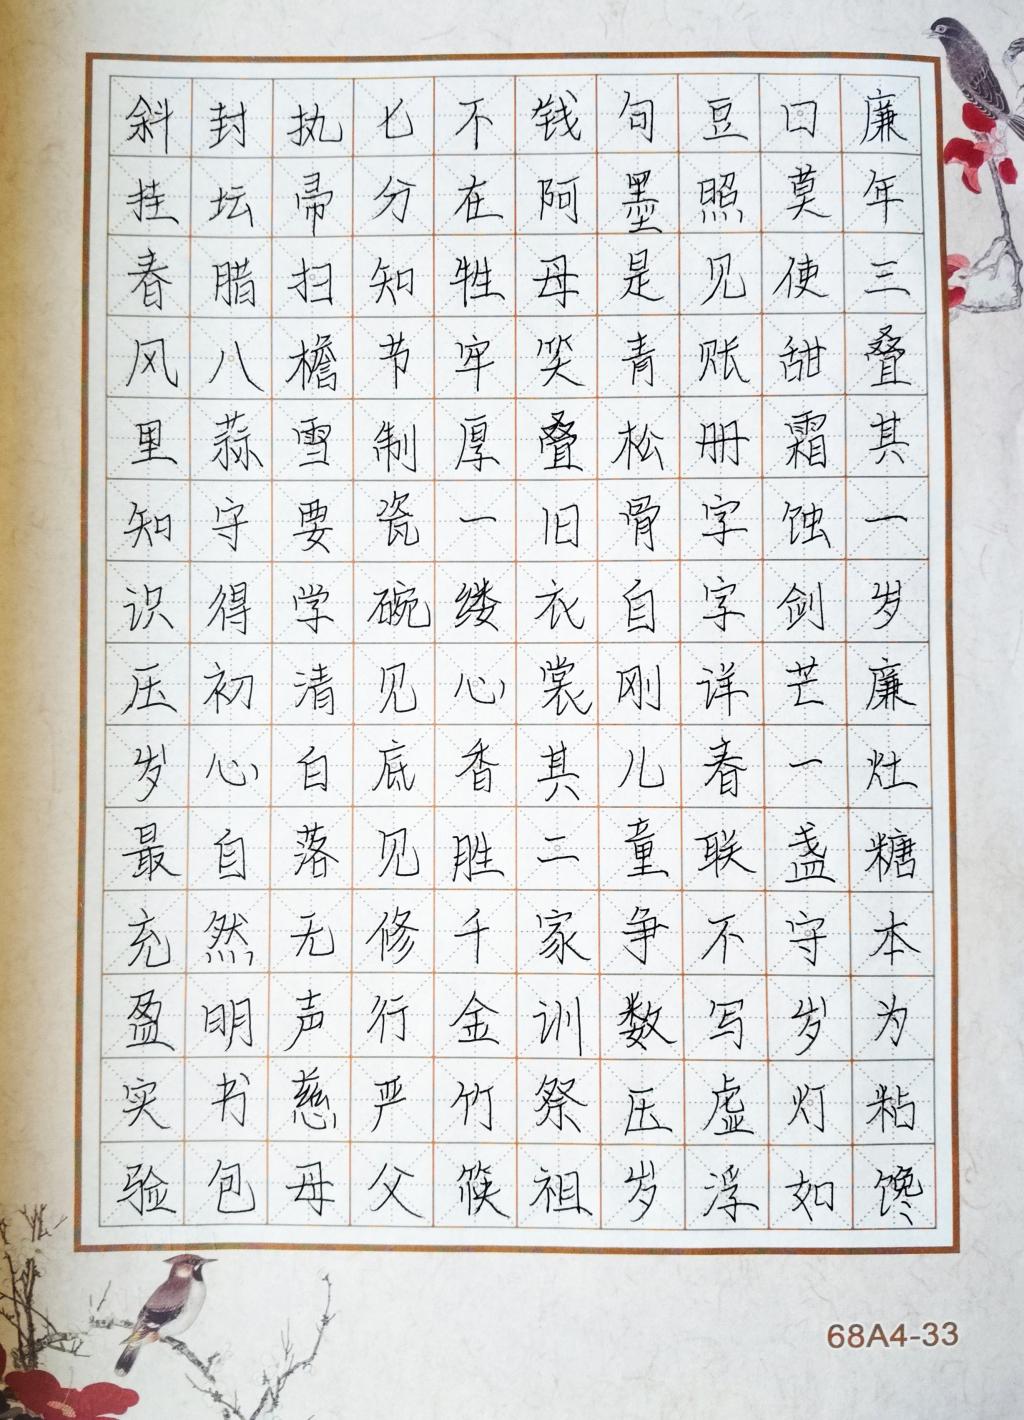 廉年三叠其一岁廉灶糖本为粘馋
口莫使甜霜蚀剑芒一盏守岁灯如
豆照见账册字字详春联不写虚浮
句墨是青松骨自刚儿童争数压岁
钱阿母笑叠旧衣裳其二家训祭祖
不在牲牢厚一缕心香胜千金竹筷
匕分知节制瓷碗见底见修行严父
执帚扫檐雪要学清白落无声慈母
封坛腊八蒜守得初心自然明书包
斜挂春风里知识压岁最充盈实验
68A4-33